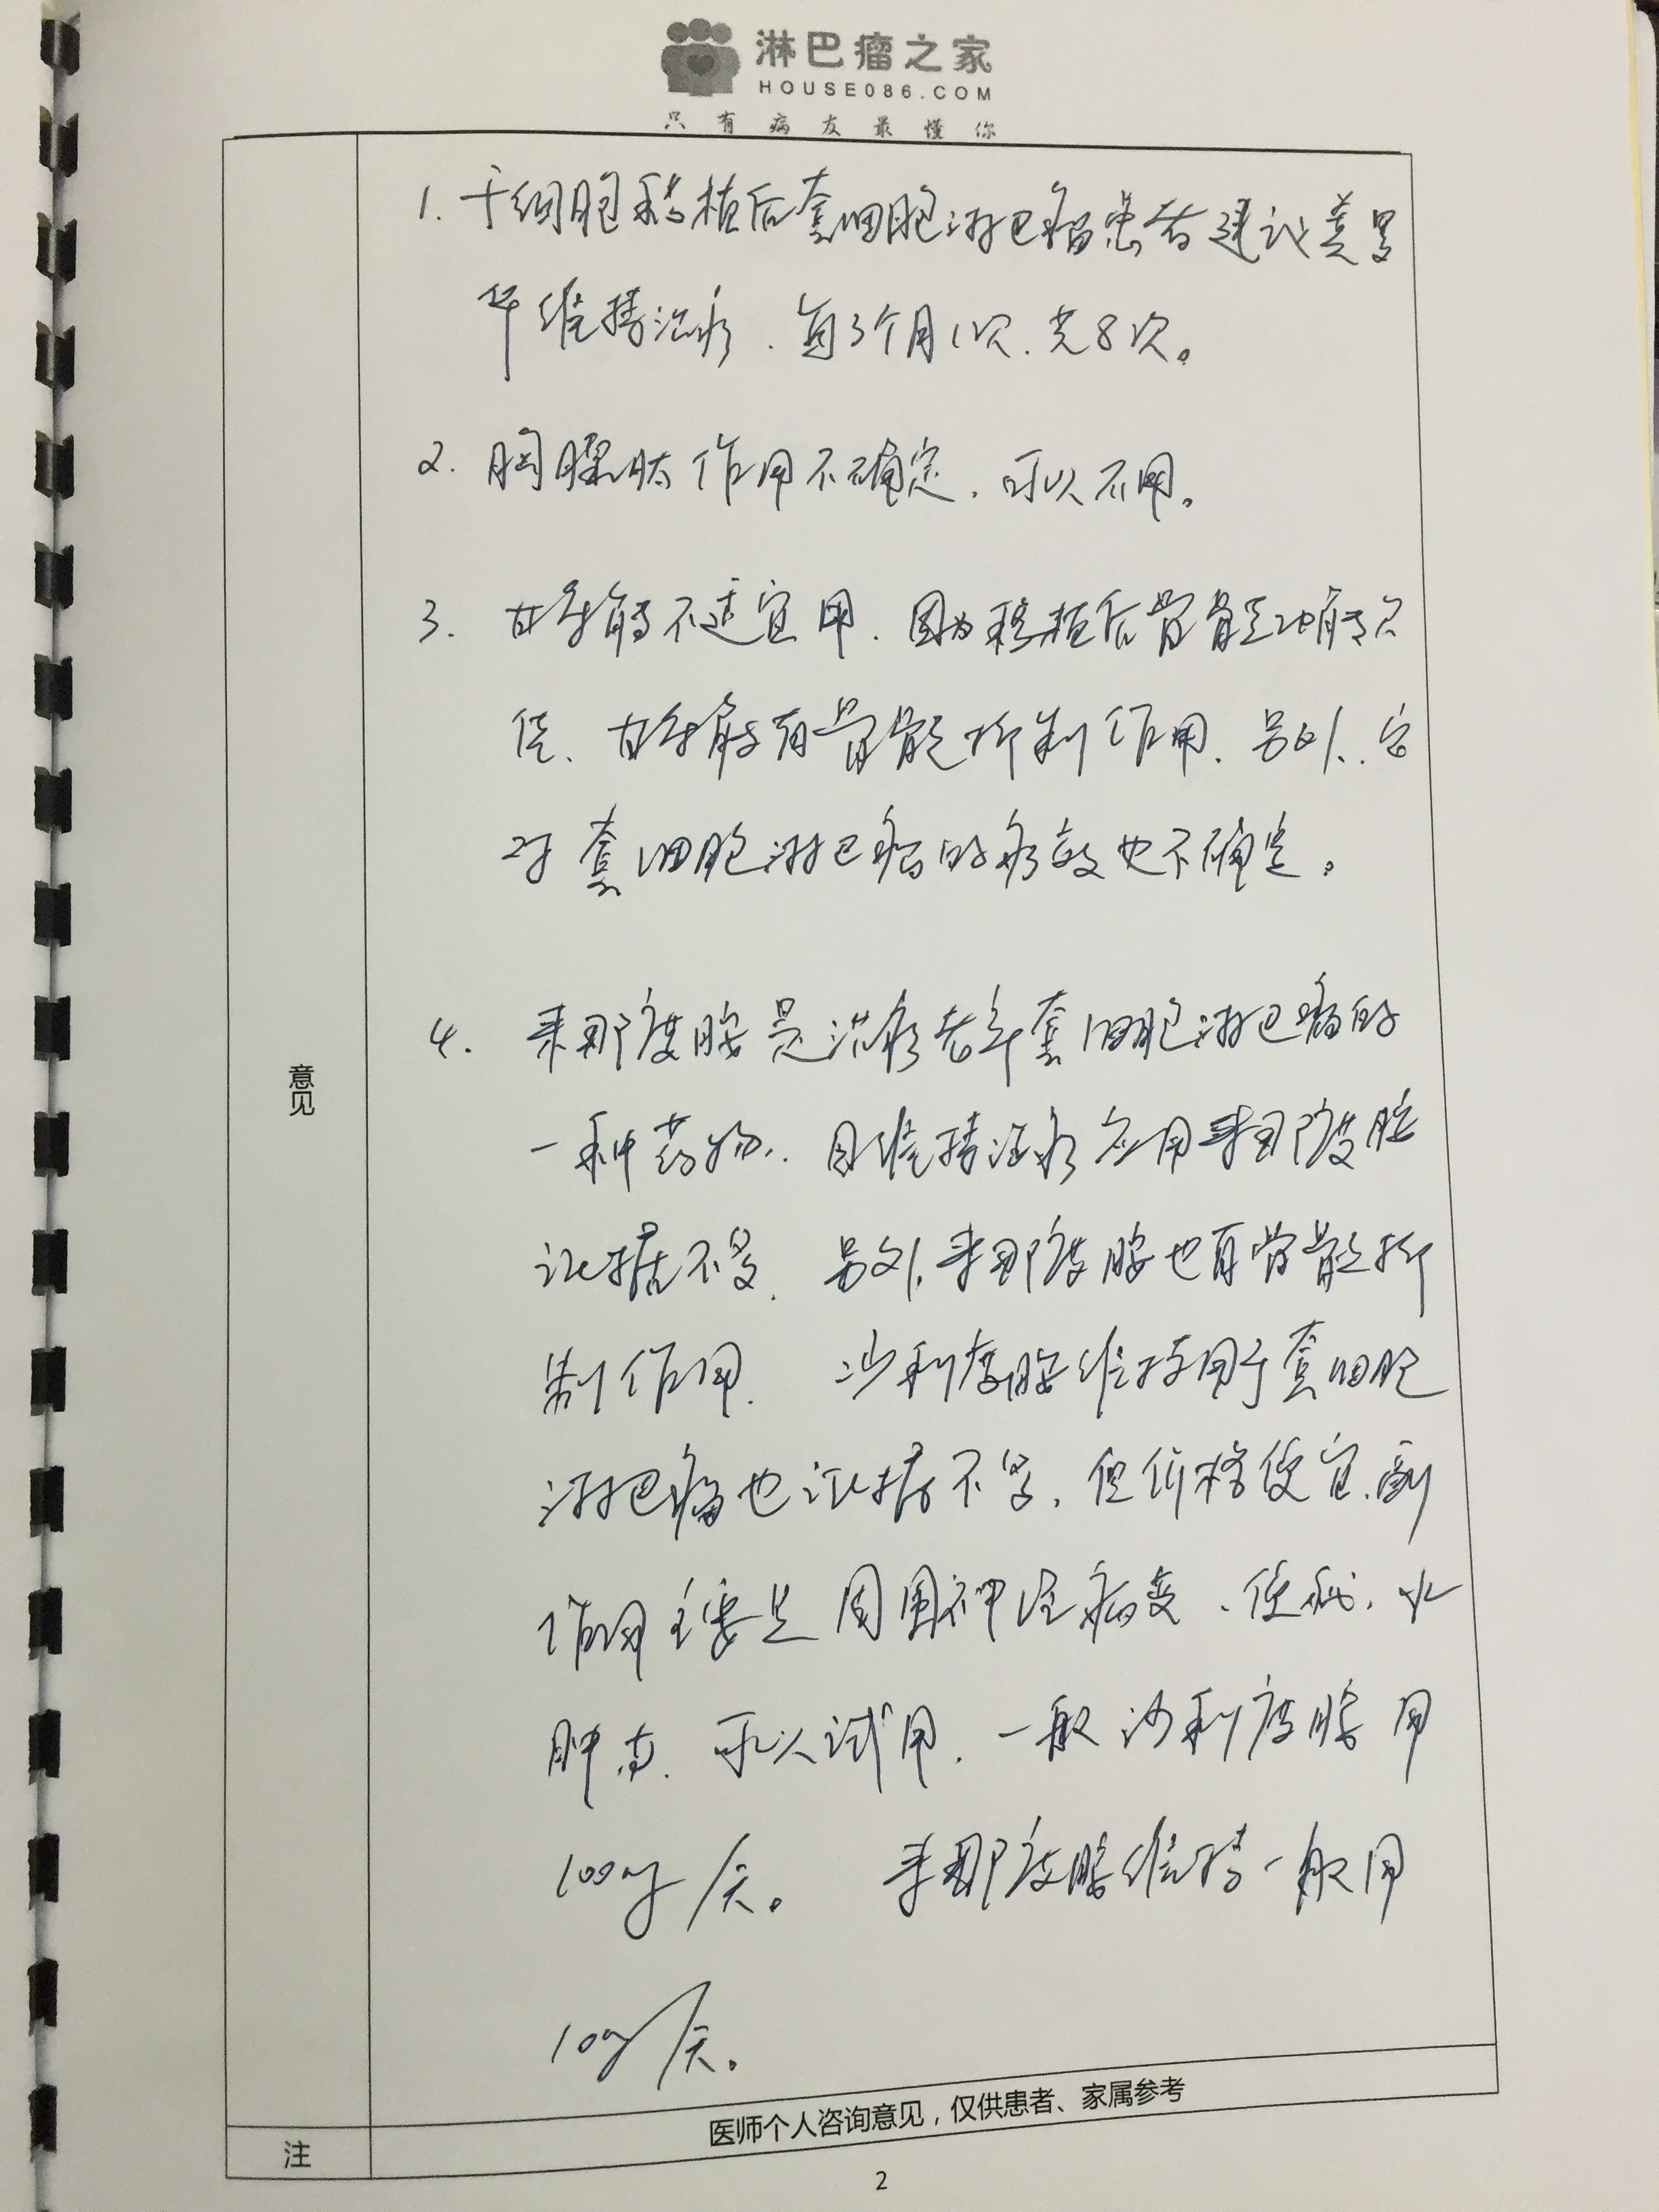 淋巴瘤之家
HOUSE086.COM
只有病友最懂你
1. 干细胞移植后套细胞淋巴瘤患者建议美罗
华维持治疗．每3个月1次．共8次。
2. 胸腺肽作用不确定．可以不用。
3. 干扰能不适宜用．因为移植后骨髓功能不
佳、干扰能有骨髓抑制作用．另外．它
对套细胞淋巴瘤的疗效也不确定。
4. 来那度胺是治疗老年套细胞淋巴瘤的
一种药物．但维持治疗应用来那度胺
证据不多．另外，来那度胺也有骨髓抑
制作用． 沙利度胺维持用于套细胞
淋巴瘤也证据不多．但价格便宜．副
作用主要是周围神经病变、便秘、水
肿等．可以试用．一般沙利度胺用
100mg/天。 来那度胺维持一般用
10mg/天。
意见
医师个人咨询意见，仅供患者、家属参考
注
2